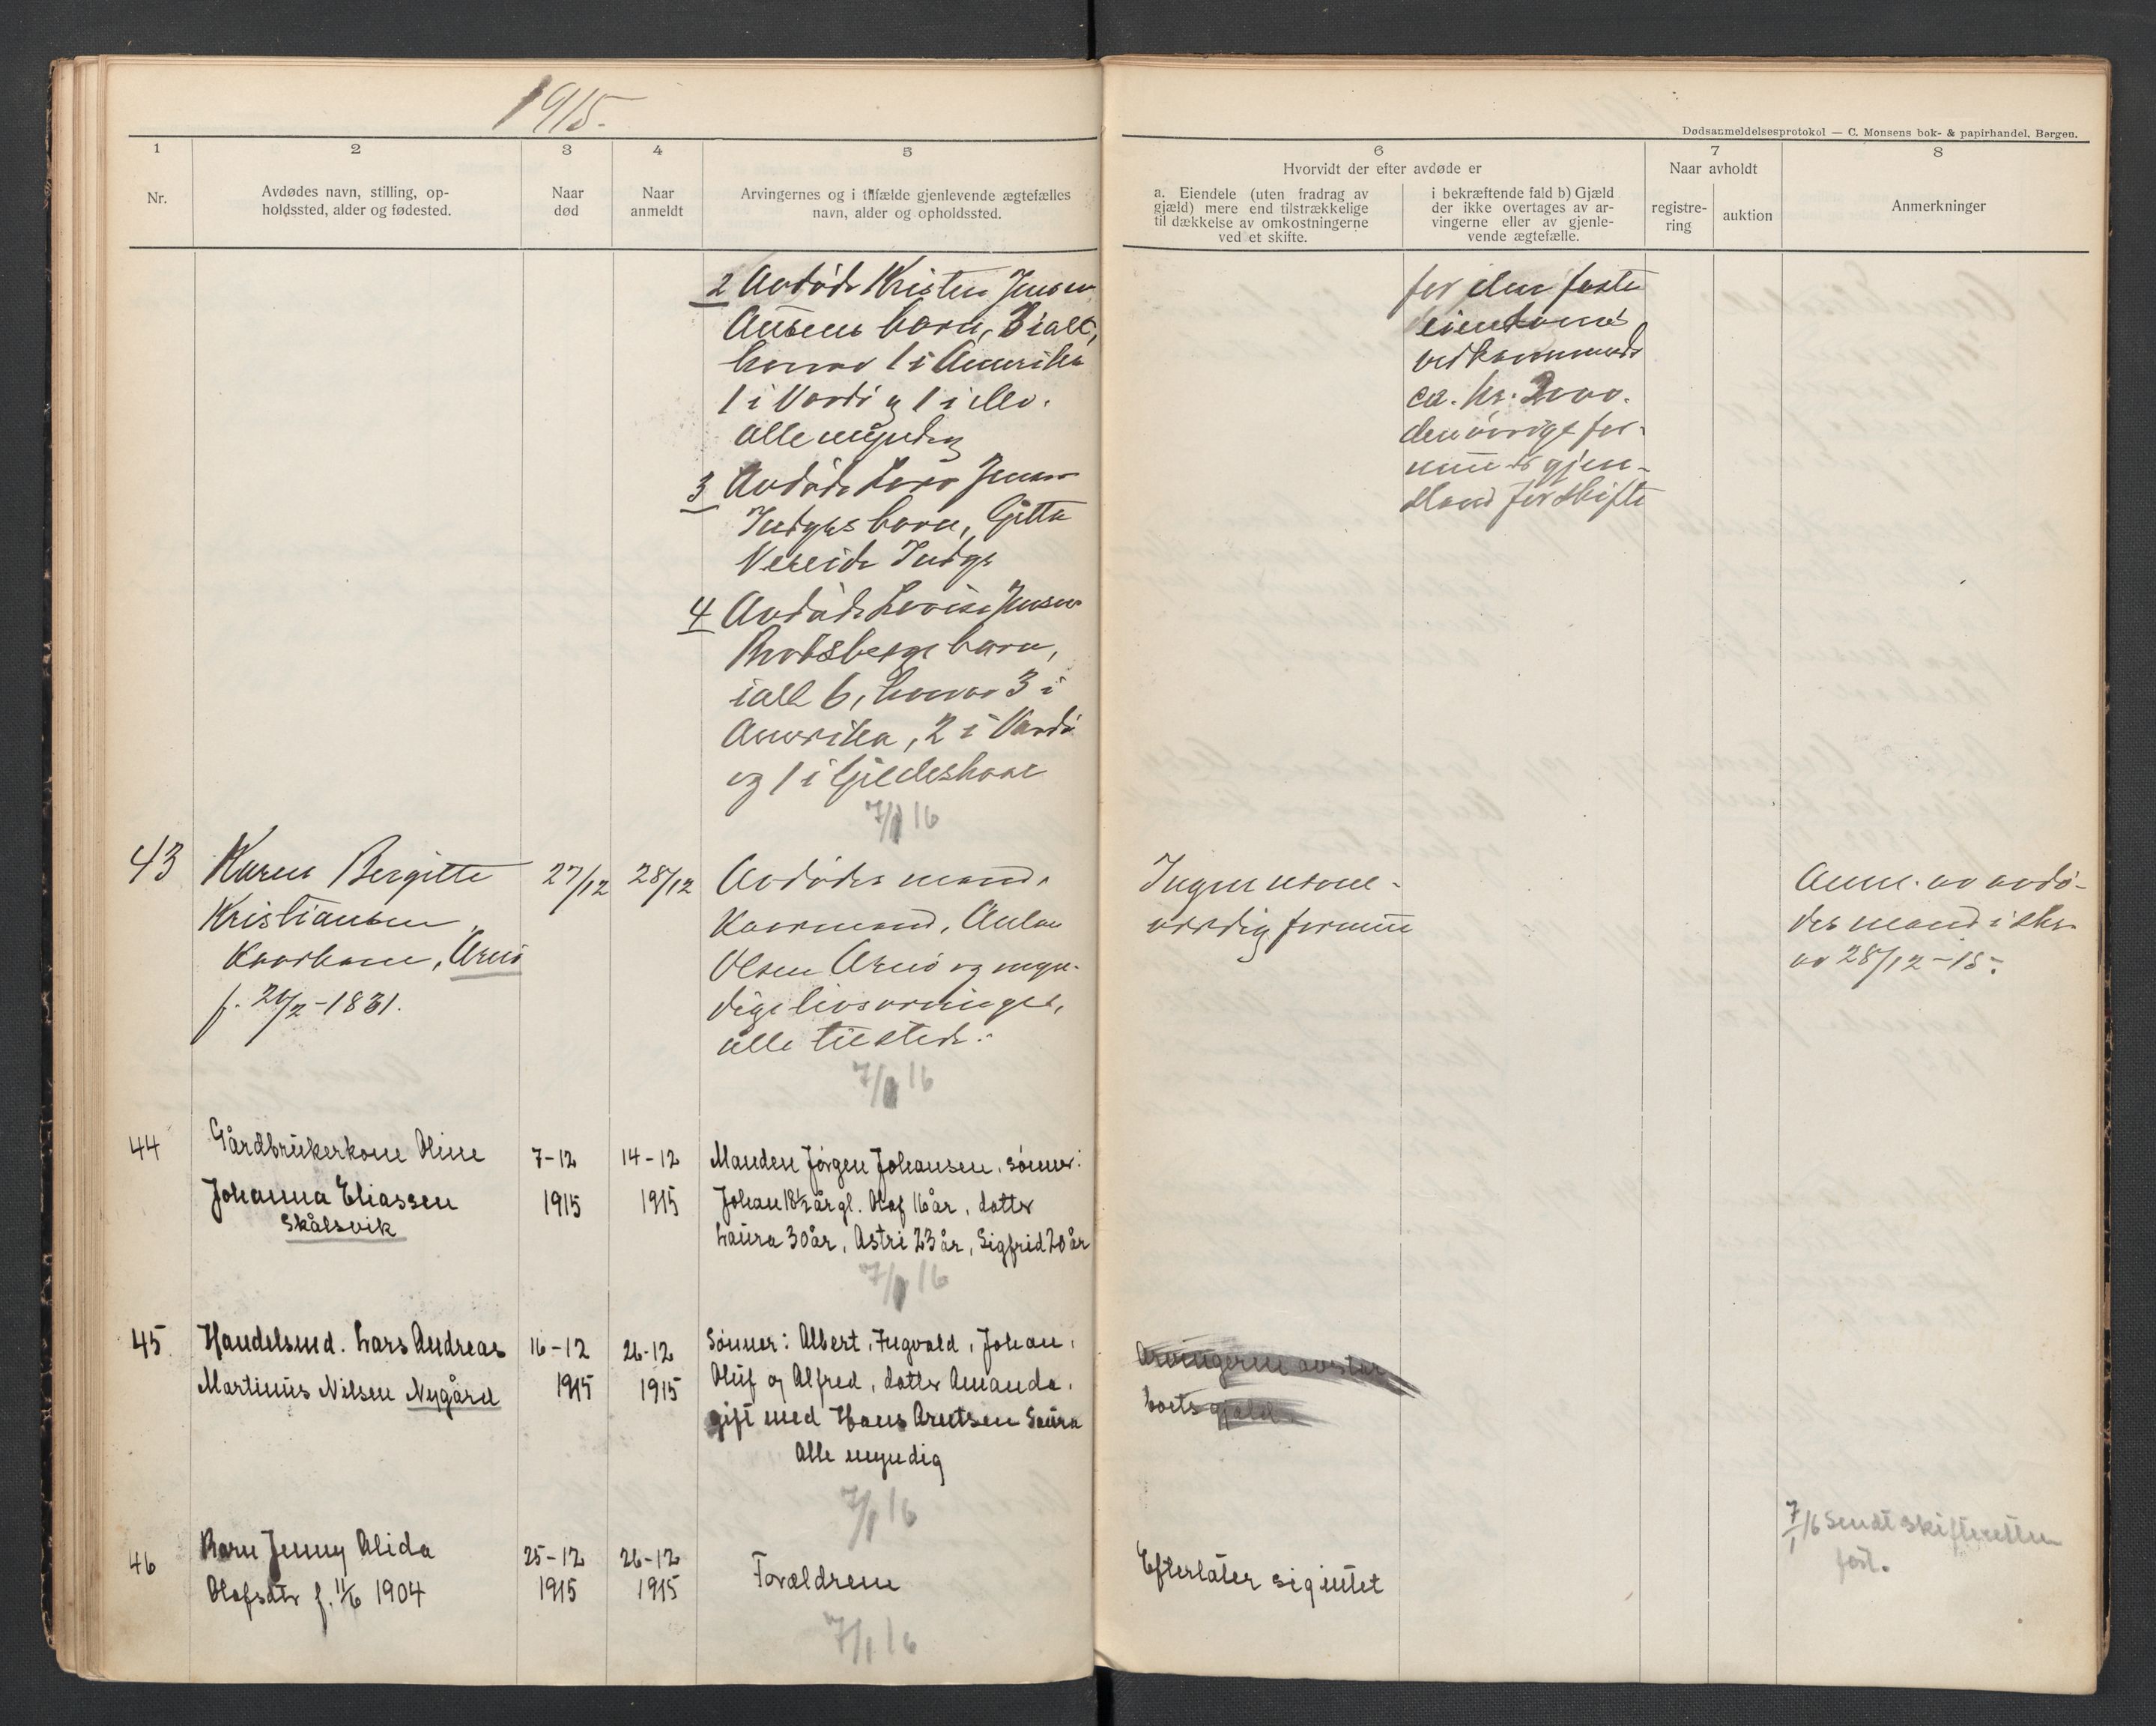 1915.
Dødsanmeldelsesprotokol — C. Monsens bok- & papirhandel, Bergen.
1
2
3
4
5
6
7
8
Nr.
Avdødes navn, stilling, op-
holdssted, alder og fødested.
Naar
død
Naar
anmeldt
Arvingernes og i tilfælde gjenlevende ægtefælles
navn, alder og opholdssted.
Hvorvidt der efter avdøde er
a. Eiendele (uten fradrag av
gjæld) mere end tilstrækkelige
til dækkelse av omkostningerne
ved et skifte.
i bekræftende fald b) Gjæld
der ikke overtages av ar-
vingerne eller av gjenle-
vende ægtefælle.
Naar avholdt
registre-
ring
auktion
Anmerkninger
2 Avdøde Kristen Jensen
barn, 3 ialt,
hvorav 1 i Amerika
1 i Vardø og 1 i
alle myndig
3 Avdøde Jensen
Indyrs barn, Gitta
Vereide Indyr
4 Avdøde Lovise Jensen
barn,
ialt 6, hvorav 3 i
Amerika, 2 i Vardø
og 1 i Gildeskaal
7/1 16
for den faste
eiendoms
vedkommende
ca. kr. 2000.
den øvrige for-
mue er gjen-
stand for skifte
43
Karen Bergitte
Kristiansen
Kaarkone, Arnø
f. 2/2-1831.
27/12
28/12
Avdødes mand,
Kaarmand, Anton
Olsen Arnø og myn-
dige livsarvinger,
alle tilstede.
7/1 16
Ingen
værdig formue
Anm. av avdø-
des mand i
av 28/12-15.
44
Gårdbrukerkone Oline
Johanna Eliassen
Skålsvik
7-12
1915
14-12
1915
Manden Jørgen Johansen, sønner:
Johan 18½ år gl. Olaf 16 år, datter
Laura 30 år, Astri 23 år, Sigfrid 20 år
7/1 16
45
Handelsmd. Lars Andreas
Martinus Nilsen Nygård
16-12
1915
26-12
1915
Sønner: Albert, Ingvald, Johan,
Oluf og Alfred, datter Amanda,
gift med Hans Arntsen Saura
Alle myndig
7/1 16
Arvingerne avstår
boets gjæld
7/1 16 Sendt skifteretten
46
Barn Jenny Alida
Olafsdtr f. 11/6 1904
25-12
1915
26-12
1915
Forældrene
7/1 16
Efterlater sig intet